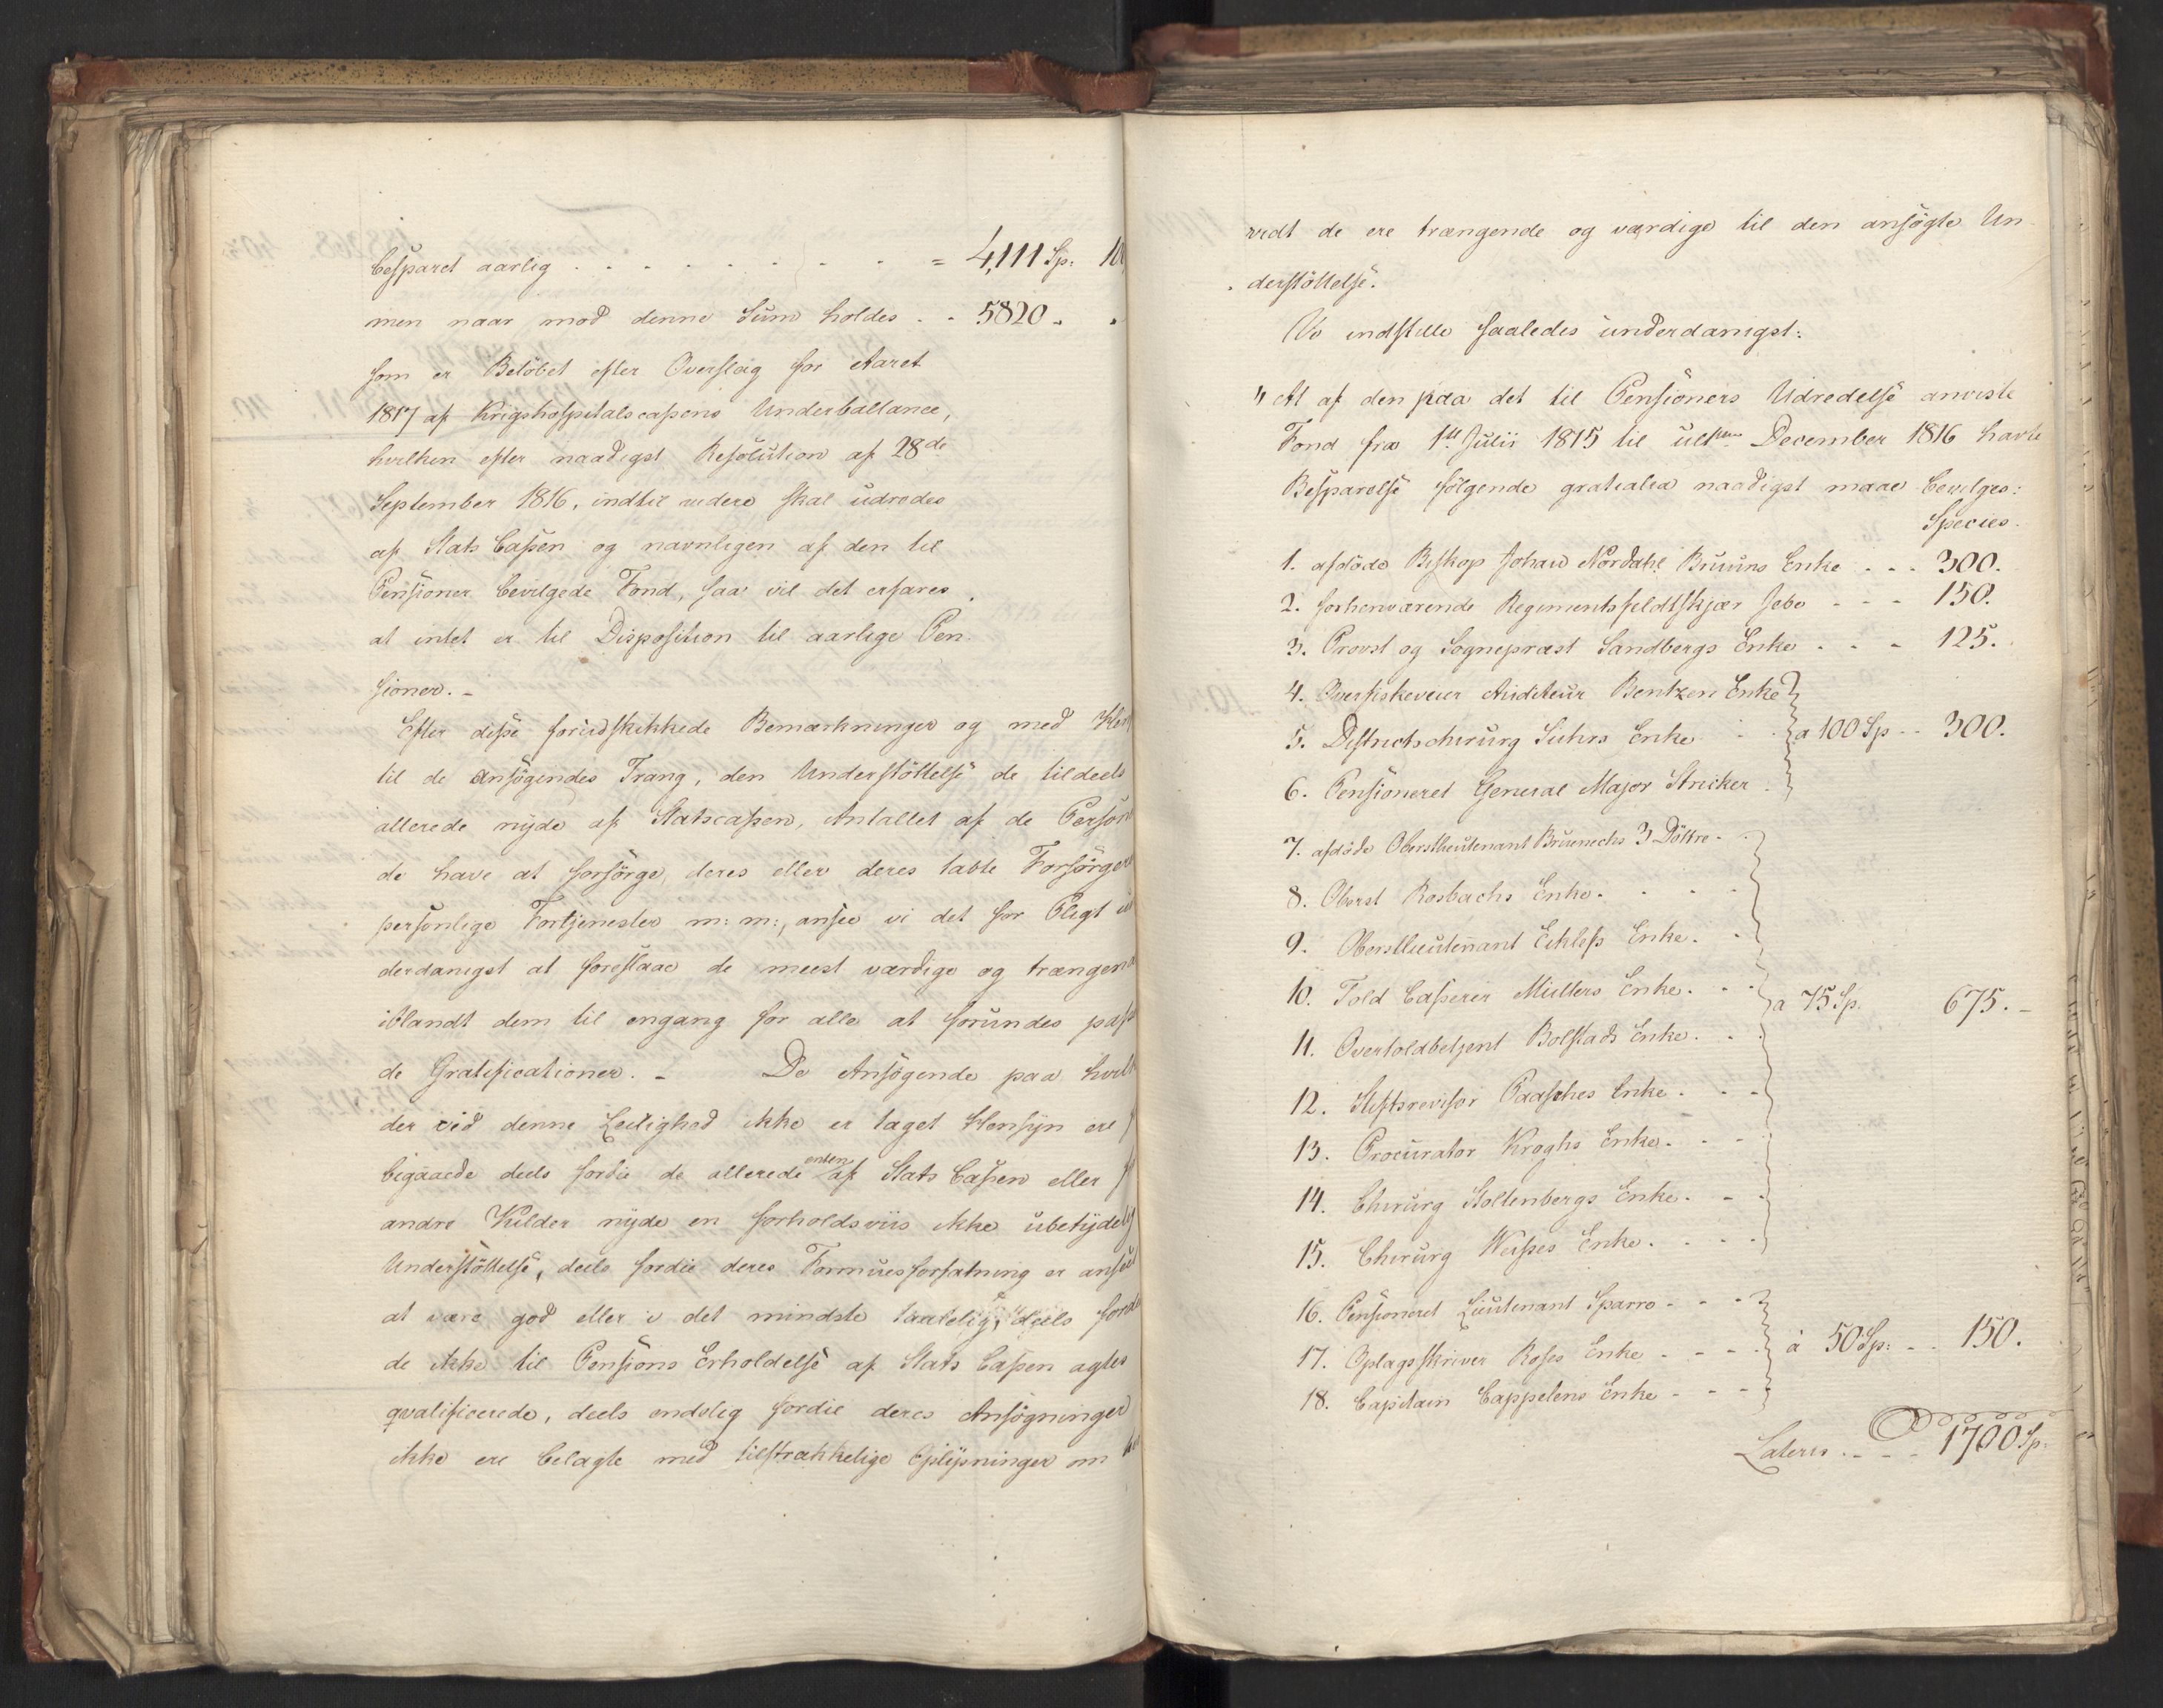 besparet aarlig . . . . . . . . = 4,111 Sp: 10
men naar mod denne Sum holdes . . 5820 „ „
som er Beløbet efter Overslag for Aaret
1817 af Krigshospitalscassens Underballance,
hvilken efter naadigst Resolution af 28de
September 1816, indtil videre skal udredes
af Stats Cassen og navnligen af den til
Pensioner bevilgede Fond, saa vil det erfares
at intet er til Disposition til aarlige Pen
sioner. –
Efter disse forudskikkede Bemærkninger og med
til de Ansøgendes Trang, den Understøttelse de tildeels
allerede nyde af Statscassen, Antallet af de
de have at forsørge, deres eller deres tabte
personlige Fortjenester m: m:, ansee vi det for Pligt
derdanigst at foreslaae de meest værdige og
iblandt dem til engang for alle at forundes
de Gratificationer. – De Ansøgende paa
der ved denne Leilighed ikke er taget Hensyn ere
bigaaede deels fordie de allerede enten af Stats Cassen eller
andre Kilder nyde en forholdsviis ikke
Understøttelse, deels fordie deres Formuesforfatning er
at være god eller i det mindste taalelig, deels
de ikke til Pensions Erholdelse af Stats Cassen agtes
qvalificerede, deels endelig fordie deres Ansøgninger
ikke ere belagte med tilstrækkelige Oplysninger om
vidt de ere trængende og værdige til den ansøgte Un
derstøttelse.
Vi indstille saaledes underdanigst:
"At af den paa det til Pensioners Udredelse anviste
Fond fra 1ste Julii 1815 til ult December 1816 havte
Besparelse følgende gratialer naadigst maae bevilges:
Species.
1. afdøde Biskop Johan Nordahl Bruuns Enke . . . 300.
2. forhenværende Regimentsfeldtskjær Jebe - - - 150.
3. Provst og Sognepræst Sandbergs Enke . . - 125.
4. Auditeur Bentzen Enke
5. Districtschirurg Suhrs Enke . . a 100 Sp - - 300.
6. Pensioneret General Major Stricker .
7. afdøde Oberstlieutenant Bruenechs 3 Døttre - .
8. Oberst Rosbachs Enke. . . .
9. Oberstlieutenant Enke. .
10. Told Casserer Müllers Enke. . . a 75 Sp. 675. –
11. Overtoldbetjent Bolstads Enke. . .
12. Stiftsrevisor Paasches Enke. . . -
13. Procurator Kroghs Enke. . - -
14. Chirurg Stoltenbergs Enke. - .
15. Chirurg Weisses Enke. . . . .
16. Pensioneret Lieutenant Sparre - - -
17. Oplagsskriver Roses Enke - - - . à 50 Sp: - . 150.
18. Capitain Cappelens Enke - - -
Lateris . - - - 1700 Sp: